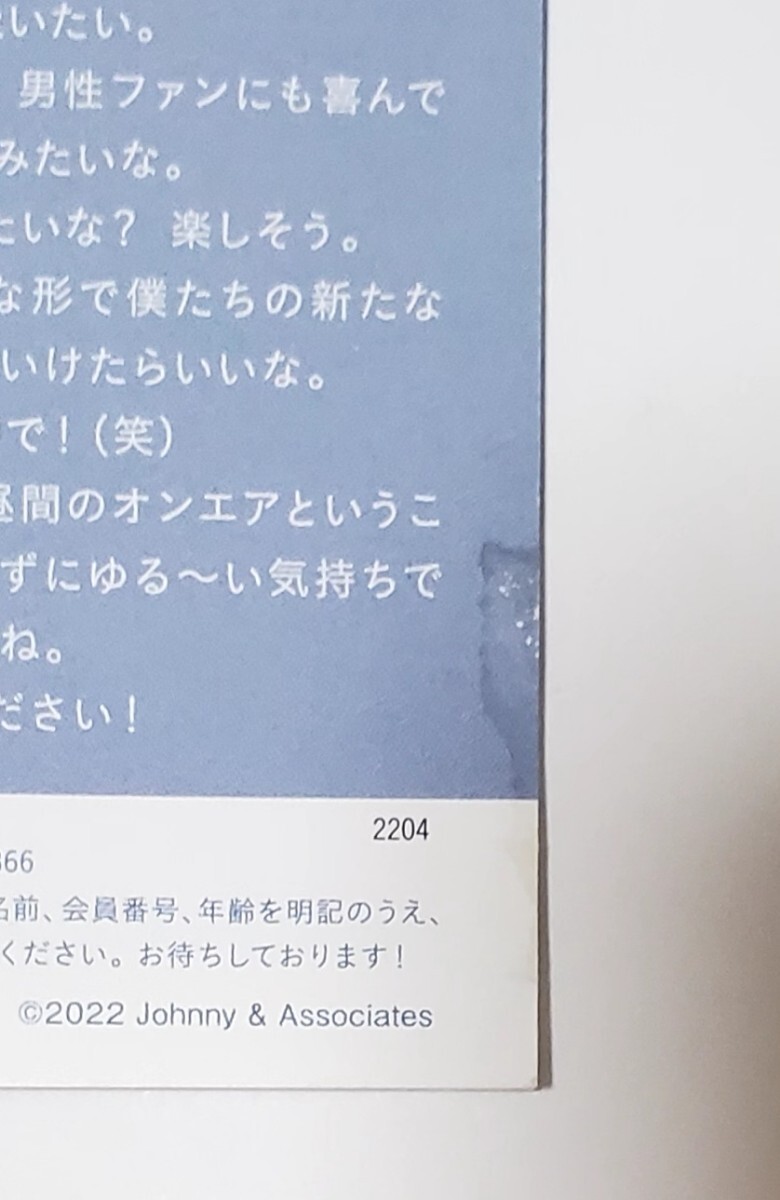 いたい。
男性ファンにも喜んで
みたいな。
たいな? 楽しそう。
な形で僕たちの新たな
いけたらいいな。
で!(笑)
昼間のオンエアというこ
ずにゆる〜い気持ちで
ね。
ださい!
2204
366
名前、会員番号、年齢を明記のうえ、
ください。お待ちしております!
©2022 Johnny & Associates